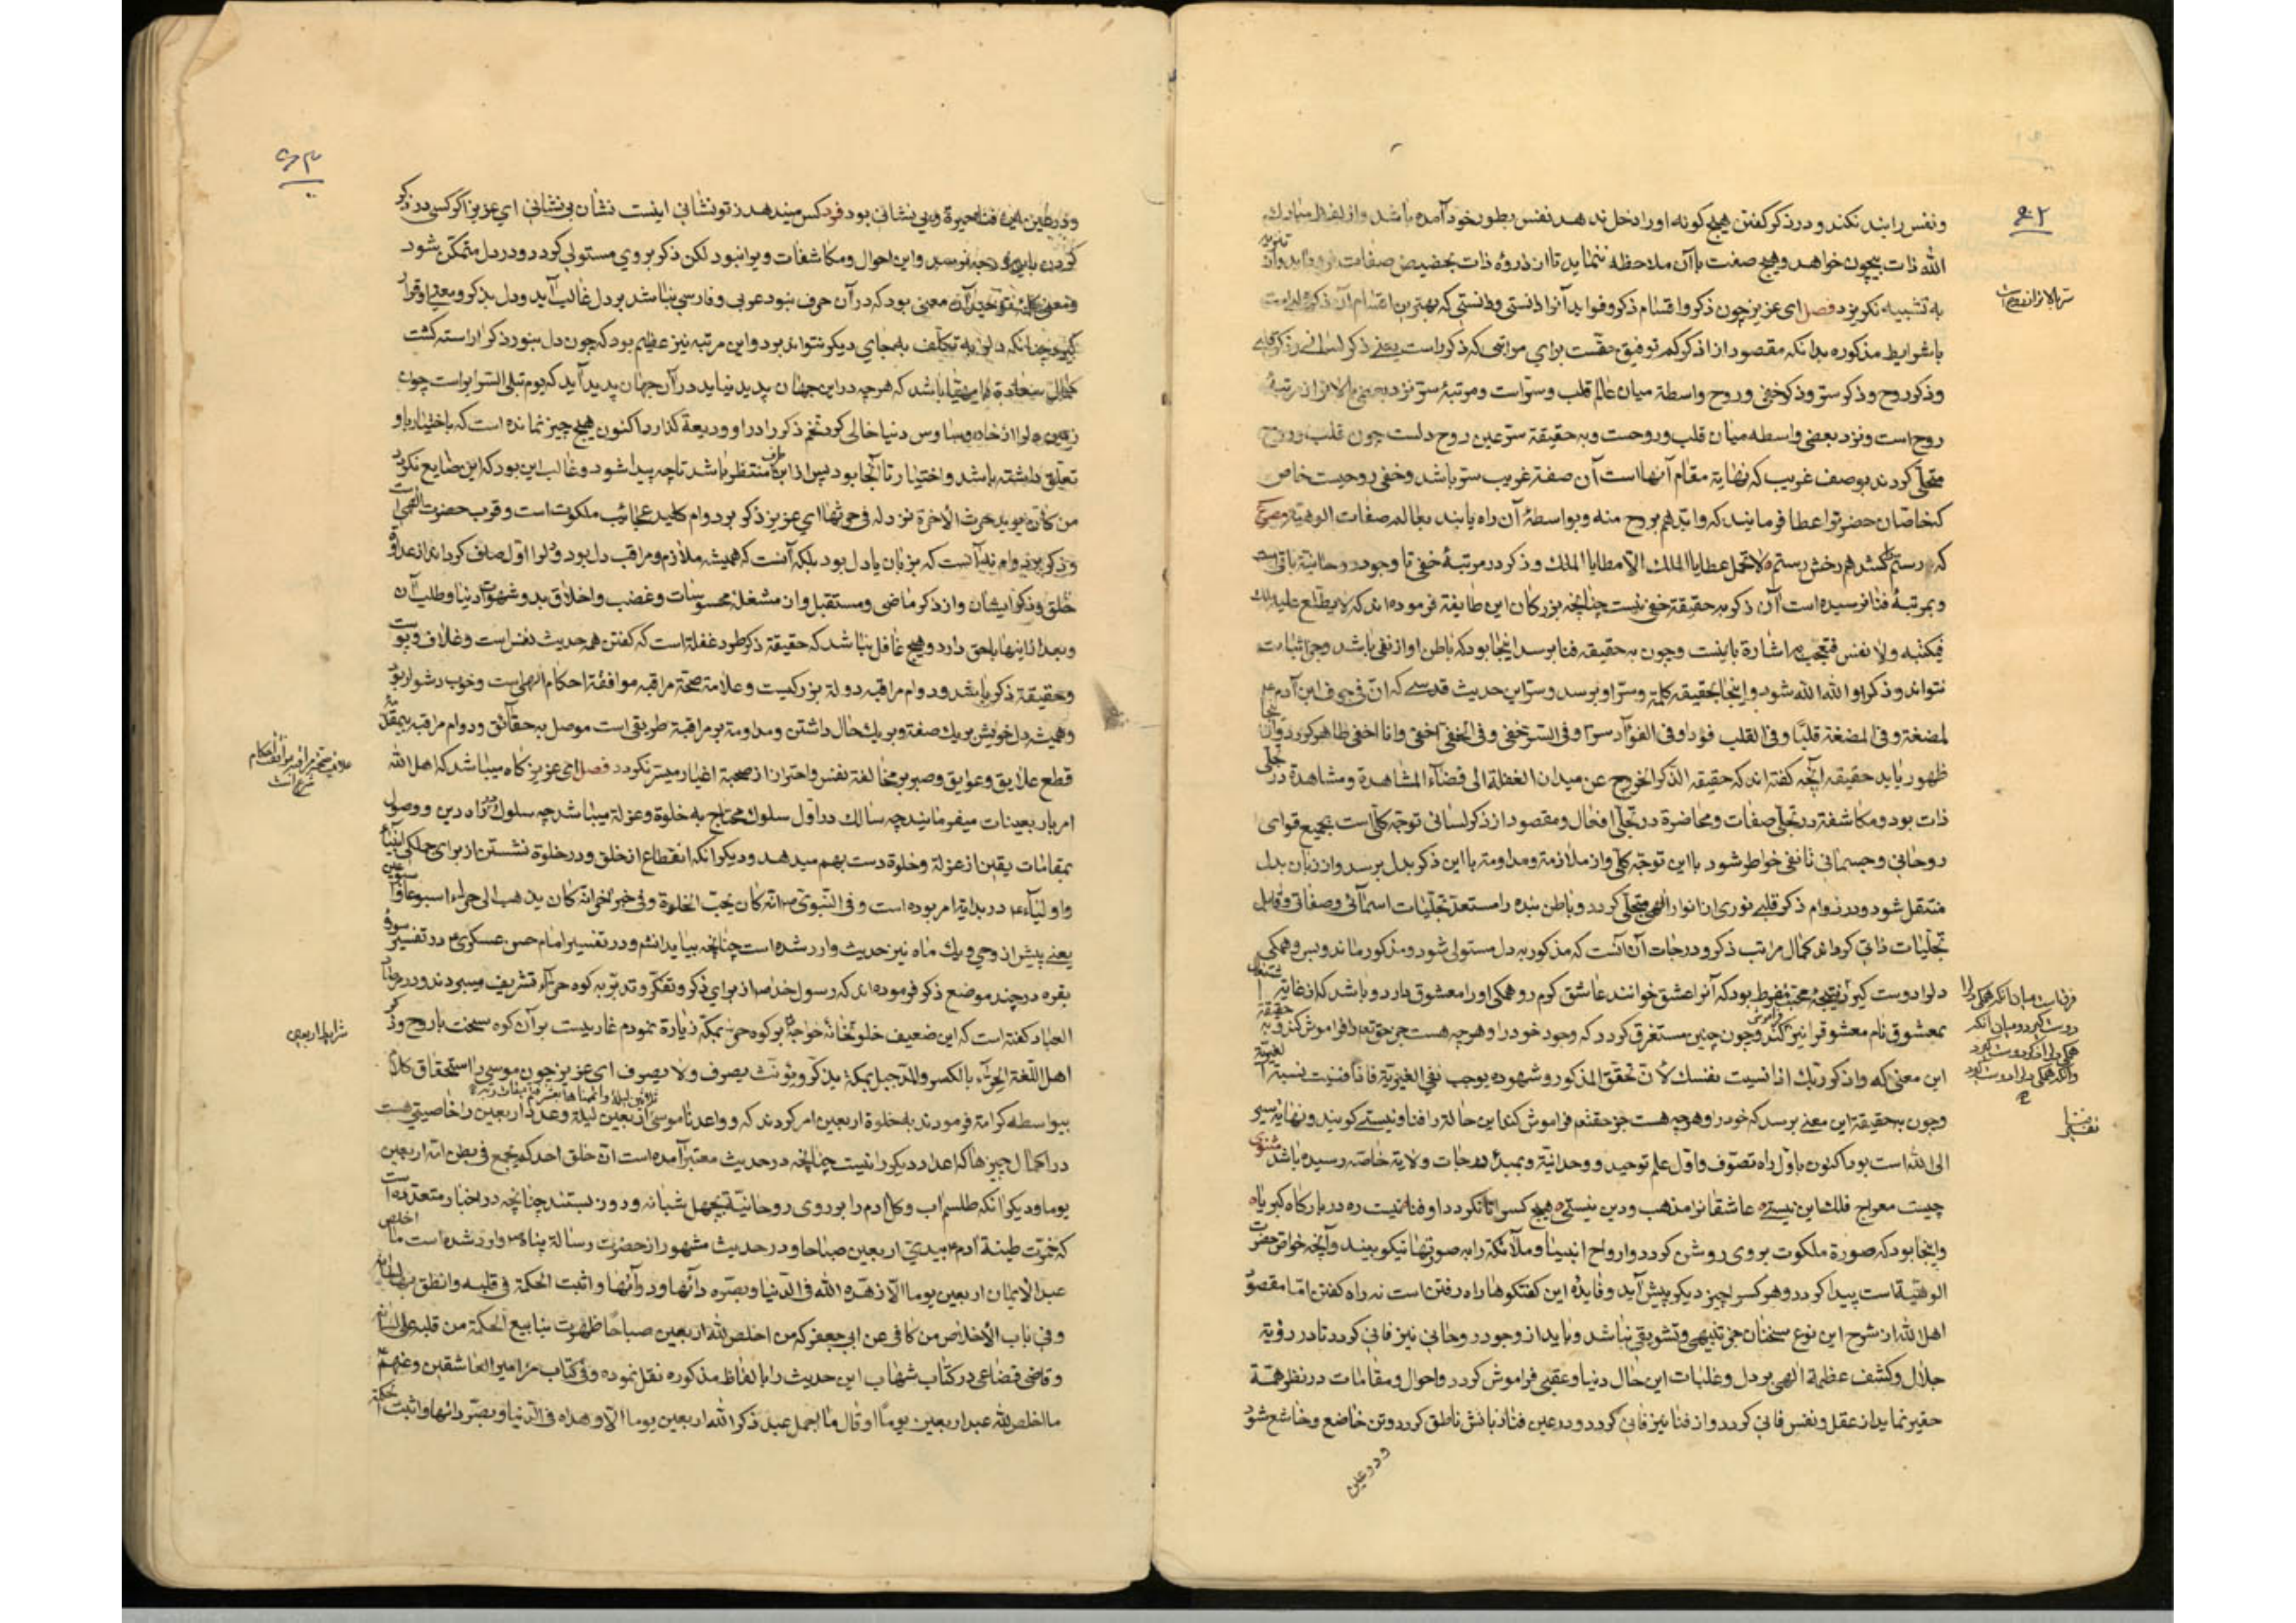 ۶۲
ونفس را بند نکند و در ذکر گفتن هیچ گونه او را دخل ندهد نفس بطور خود آمده باشد و از لفظ مبارک
الله ذات بیچون خواهد و هیچ صفت با آن ملاحظه ننماید تا از ذروه ذات بحضیض صفات فرو نیاید و از تنزیه
به تشبیه نگریزد فصل ای عزیز چون ذکر و اقسام ذکر و فواید آنرا دانستی و دانستی که بهترین اقسام آن ذکر
با شرایط مذکوره بدانکه مقصود از اذکرکم توفیق حقست برای مراتبی که ذکر راست یعنی ذکر لسانی و ذکر قلبی
وذکر روح وذکر سرّ وذکر خفی وروح واسطهٔ میان عالم قلب وسرّ است ومرتبهٔ سرّ نزد بعضی بالاتر از مرتبهٔ
روح است ونزد بعضی واسطه میان قلب وروحست وبه حقیقة سرّ عین روح دلست چون قلب وروح
متجلّی گردند بوصف غریب که نهایة مقام آنها است آن صفة غریب سرّ باشد وخفی روحیست خاص
که خاصان حضرترا عطا فرمایند که وایّدهم بروح منه وبواسطهٔ آن راه یابند بعالم صفات الوهیّة مصرع
که رستم کشد هم رخش رستم لا تحمل عطایا الملک الّا مطایا الملک و ذکر در مرتبهٔ خفی تا وجود روحانیة باقیست
وبمرتبهٔ فنا نرسیده است آن ذکر به حقیقة خفی نیست چنانچه بزرگان این طایفة فرموده اند که لا یطلع علیه ملک
فیکتبه ولا نفس فتعجب به اشارة باینست وچون به حقیقه فنا برسد اینجا بود که باطن او از نفی باشد وجز اثبات
نتواند وذکر او الله الله شود واینجا بحقیقه کلمة وسرّ او برسد وسرّ این حدیث قدسی که انّ فی جوف ابن آدم
لمضغة وفی المضغة قلبًا وفی القلب فؤادا وفی الفوآد سرّا وفی السرّ خفی وفی الخفی اخفی وانا اخفی ظاهر گردد وآنجا
ظهور یابد حقیقه آنچه گفته اند که حقیقه الذکر الخروج عن میدان الغفلة الی فضآء المشاهدة ومشاهدة در تجلی
ذات بود ومکاشفة در تجلّی صفات ومحاضرة در تجلّی افعال ومقصود از ذکر لسانی توجّه کلّی است بجمیع قوای
روحانی وجسمانی تا نفی خواطر شود با این توجّه کلّی واز ملازمة ومداومة با این ذکر بدل برسد واز زبان بدل
منتقل شود ودر دوام ذکر قلبی نوری از انوار الهی متجلّی گردد وباطن بنده را مستعدّ تجلّیات اسمآئی وصفاتی وقابل
تجلّیات ذاتی گرداند کمال مراتب ذکر ودرجات آن آنست که مذکور به دل مستولی شود ومذکور ماند وبس وهمگی
دل را دوست گیرد این نتیجهٔ محبّت مفرط بود که آنرا عشق خوانند عاشق گرم رو همگی او را معشوق دارد وباشد که از غایة اشتغال
بمعشوق نام معشوق را نیز فراموش کند وچون چنین مستغرق گردد که وجود خود را وهر چه هست جز حق تعا فراموش کند وبه حقیقة
این معنی که واذکر ربّک اذا نسیت نفسک لأنّ تحقّق المذکور وشهوده یوجب نفی الغیریّة
وچون به حقیقة این معنی برسد که خود را وهر چه هست جز حقتعم فراموش کند این حالة را فنا ونیستی گویند ونهایة سیر
الی الله است بود اکنون باوّل راه تصوّف واوّل علم توحید ووحدانیّة وبمبدأ درجات ولایة خاصّه رسیده باشد مثنوی
چیست معراج فلک این نیستی عاشقانرا مذهب ودین نیستی هیچ کس را تا نگردد او فنا نیست ره در بارگاه کبریا
واینجا بود که صورة ملکوت بر وی روشن گردد وارواح انبیا وملآئکة را به صورتها نیکو بیند وآنچه خواصّ حضرت
الوهیّة است پیدا گردد وهر کس را چیز دیگر پیش آید وفایدهٔ این گفتگوها راه رفتن است نه راه گفتن امّا مقصود
اهل الله از شرح این نوع سخنان جز تنبیهی وتشویقی نباشد وباید از وجود روحانی نیز فانی گردد تا در رؤیة
جلال وکشف عظمة الهی بر دل وغلبات این حال دنیا وعقبی فراموش گردد واحوال ومقامات در نظر همّة
حقیر نماید از عقل ونفس فانی گردد واز فنا نیز فانی گردد ودر عین فنا زبانش ناطق گردد وتن خاضع وخاشع شود
ودر عین
سرّ بالاتر از روح است
فرقست میان آنکه همگی دل را
دوست گیرد ومیان آنکه
۶۳
کردن باین درجه نرسد واین احوال ومکاشفات ویرا نبود لکن ذکر بر وی مستولی گردد ودر دل متمکّن شود
ومعنی کلمهٔ توحید آن معنی بود که در آن حرف نبود عربی وفارسی نباشد بر دل غالب آید ودل بذکر ومعنی او قرار
گیرد چنانکه دل را به تکلّف به جای دیگر نتواند برد واین مرتبه نیز عظیم بود که چون دل بنور ذکر آراسته گشت
کمال سعادة را مهیّا باشد که هر چه در این جهان پدید نیاید در آن جهان پدید آید که یوم تبلی السرآئر است چون
زمین دل را از خار وساوس دنیا خالی کرد تخم ذکر را در او ودیعة گذارد اکنون هیچ چیز نمانده است که باختیار باو
تعلّق داشته باشد واختیار تا آنجا بود پس از این منتظر باشد تا چه پیدا شود وغالب این بود که این ضایع نگردد
من کان یرید حرث الآخرة نزد له فی حرثه ای عزیز ذکر بر دوام کلید عجائب ملکوت است وقرب حضرت الهی است
وذکر بر دوام نه آنست که بزبان یا دل بود بلکه آنست که همیشه ملازم ومراقب دل بود ودل را اوّل صاف گرداند از عداوة
خلق وذکر ایشان واز ذکر ماضی ومستقبل واز مشغلهٔ محسوسات وغضب واخلاق بد وشهوت دنیا وطلب آن
وبعد از اینها با حق دارد وهیچ غافل نباشد که حقیقة ذکر طرد غفلة است که گفتن همه حدیث نفس است وغلاف وپوست
وحقیقة ذکر باشد ودوام مراقبه دولة بزرگیست وعلامة صحّة مراقبه موافقة احکام الهی است وخوب دشوار بود
وهمیشه دل خویش بر یک صفة وبر یک حال داشتن ومداومة بر مراقبة طریقی است موصل به حقآئق ودوام مراقبه بی مقدّمهٔ
قطع علایق وعوایق وصبر بر مخالفة نفس واحتراز از صحبة اغیار میسّر نگردد فصل ای عزیز گاه میباشد که اهل الله
امر باربعینات میفرمایند چه سالک در اوّل سلوک محتاج به خلوة وعزلة میباشد چه سلوک راه دین ووصول
بمقامات یقین از عزلة وخلوة دست بهم میدهد ودیگر آنکه انقطاع از خلق ودر خلوة نشستن از برای جملگی انبیاء
واولیآء در بدایة امر بوده است وفی النّبویّ انّه کان یحبّ الخلوة وفی خبر آخر انّه کان یذهب الی حراء اسبوعا او اسبوعین
یعنی پیش از وحی ویک ماه نیز حدیث وارد شده است چنانچه بیاید انشم ودر تفسیر امام حسن عسکری در تفسیر سورهٔ
بقره در چند موضع ذکر فرموده اند که رسول خدا از برای ذکر وتفکّر وتدبّر به کوه حرآء تشریف میبردند ودر مرصاد
العباد گفته است که این ضعیف خلوتخانهٔ خواجه بر کوه حرآ بمکّه زیارة نمودم غاریست بر آن کوه سخت با روح وذکر
اهل اللّغة الحرآء بالکسر والمدّ جبل بمکّة یذکّر ویؤنّث یصرف ولا یصرف ای عزیز چون موسی را استحقاق کلام
بیواسطه کرامة فرمودند به خلوة اربعین امر کردند که وواعدنا موسی اربعین لیلة وعدد اربعین را خاصیتی هست
در اکمال چیزها که اعداد دیگر را نیست چنانچه در حدیث معتبر آمده است انّ خلق احدکم یجمع فی بطن امّه اربعین
یوما ودیگر آنکه طلسم آب وگل آدم را بر روی روحانیّة بچهل شبانه روز بستند چنانچه در اخبار متعدّده است
که خمّرت طینة آدم بیدیّ اربعین صباحا ودر حدیث مشهور از حضرت رسالة پناه وارد شده است ما اخلص
عبد الایمان اربعین یوما الّا زهّده الله فی الدّنیا وبصّره دآئها ودوآئها واثبت الحکمة فی قلبه وانطق بها لسانه
وفی باب الأخلاص من کافی عن ابی جعفر که من اخلص لله اربعین صباحا ظهرت ینابیع الحکمة من قلبه علی لسانه
وقاضی قضاعی در کتاب شهاب این حدیث را با الفاظ مذکوره نقل نموده وفی کتاب مزامیر العاشقین
ما اخلص لله عبد اربعین یوما او قال ما اجمل عبد ذکر الله اربعین یوما الّا وهداه فی الدّنیا وبصّره دائها واثبت الحکمة
علامة صحّة مراقبه موافقة احکام
شرعیّه است
شرایط اربعین